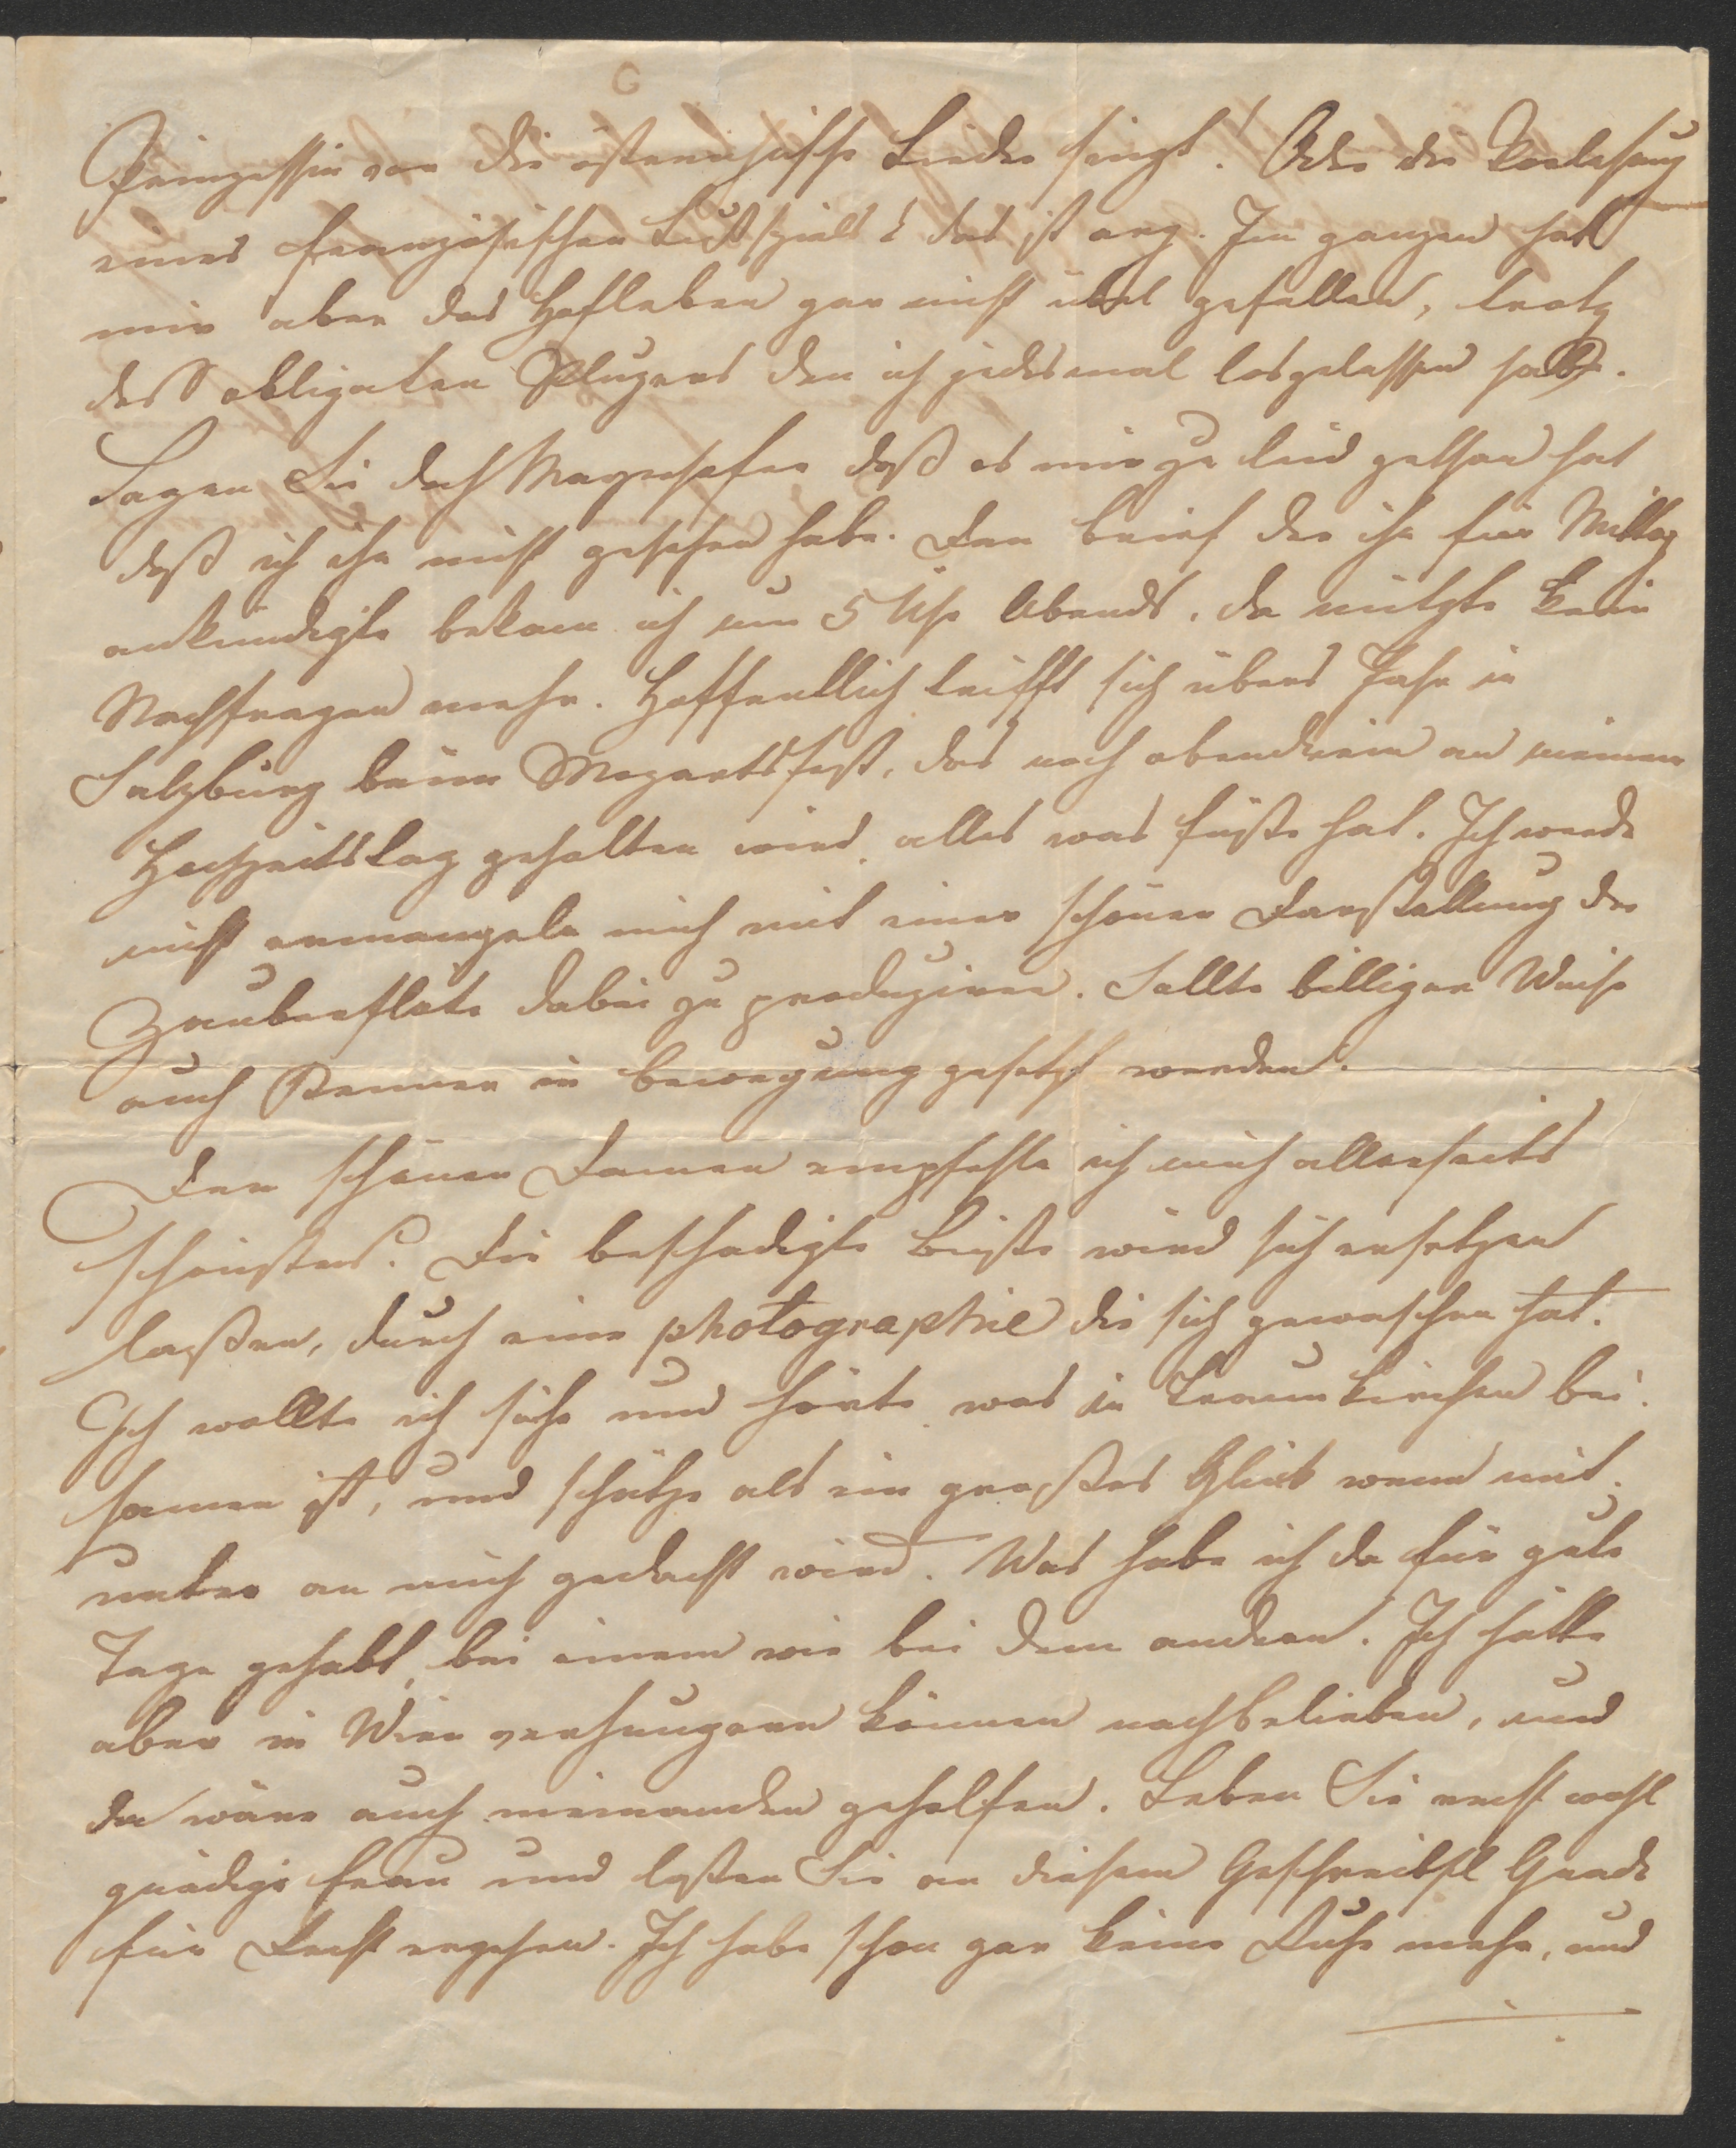 Prinzessin vor die österreichische Lieder singt! Oder die Vorlesung
eines französischen Lustspiels! das ist arg. Im ganzen hat
mir aber das Hofleben gar nicht übel gefallen, trotz
des obligaten den ich jedesmal losgelassen habe.
Sagen Sie doch Mayerhofer daß es mir zu leid gethan hat
daß ich ihn nicht gesehen habe. Den Brief der ihn für Mittag
ankündigte bekam ich um 5 Uhr Abends, da nützte kein
Nachfragen mehr. Hoffentlich trifft sich übers Jahr in
Salzburg beim Mozartsfest, das noch obendrein an meinem
Hochzeitstag gehalten wird, alles was Füße hat. Ich werde
nicht ermangeln mich mit einer schönen Darstellung der
Zauberflöte dabei zu produziren. Sollte billiger Weise
auch Renner in Bewegung gesetzt werden.
Den schönen Damen empfehle ich mich allerseits
schönstens. Die beschädigte Büste wird sich ersetzen
laßen, durch eine photographie die sich gewaschen hat.
Ich wollte ich sähe und hörte was in Traunkirchen bei-
samen ist, und schätze als ein großes Glück wenn mit-
unter an mich gedacht wird. Was habe ich da für gute
Tage gehabt, bei einem wie bei dem andern. Ich hätte
aber in Wien verhungern können nach Belieben, und
da wäre auch niemanden geholfen. Leben Sie recht wohl
gnädige Frau und laßen Sie an diesem Geschreibsl Gnade
für Recht ergehen. Ich habe schon gar keine Ruhe mehr, und